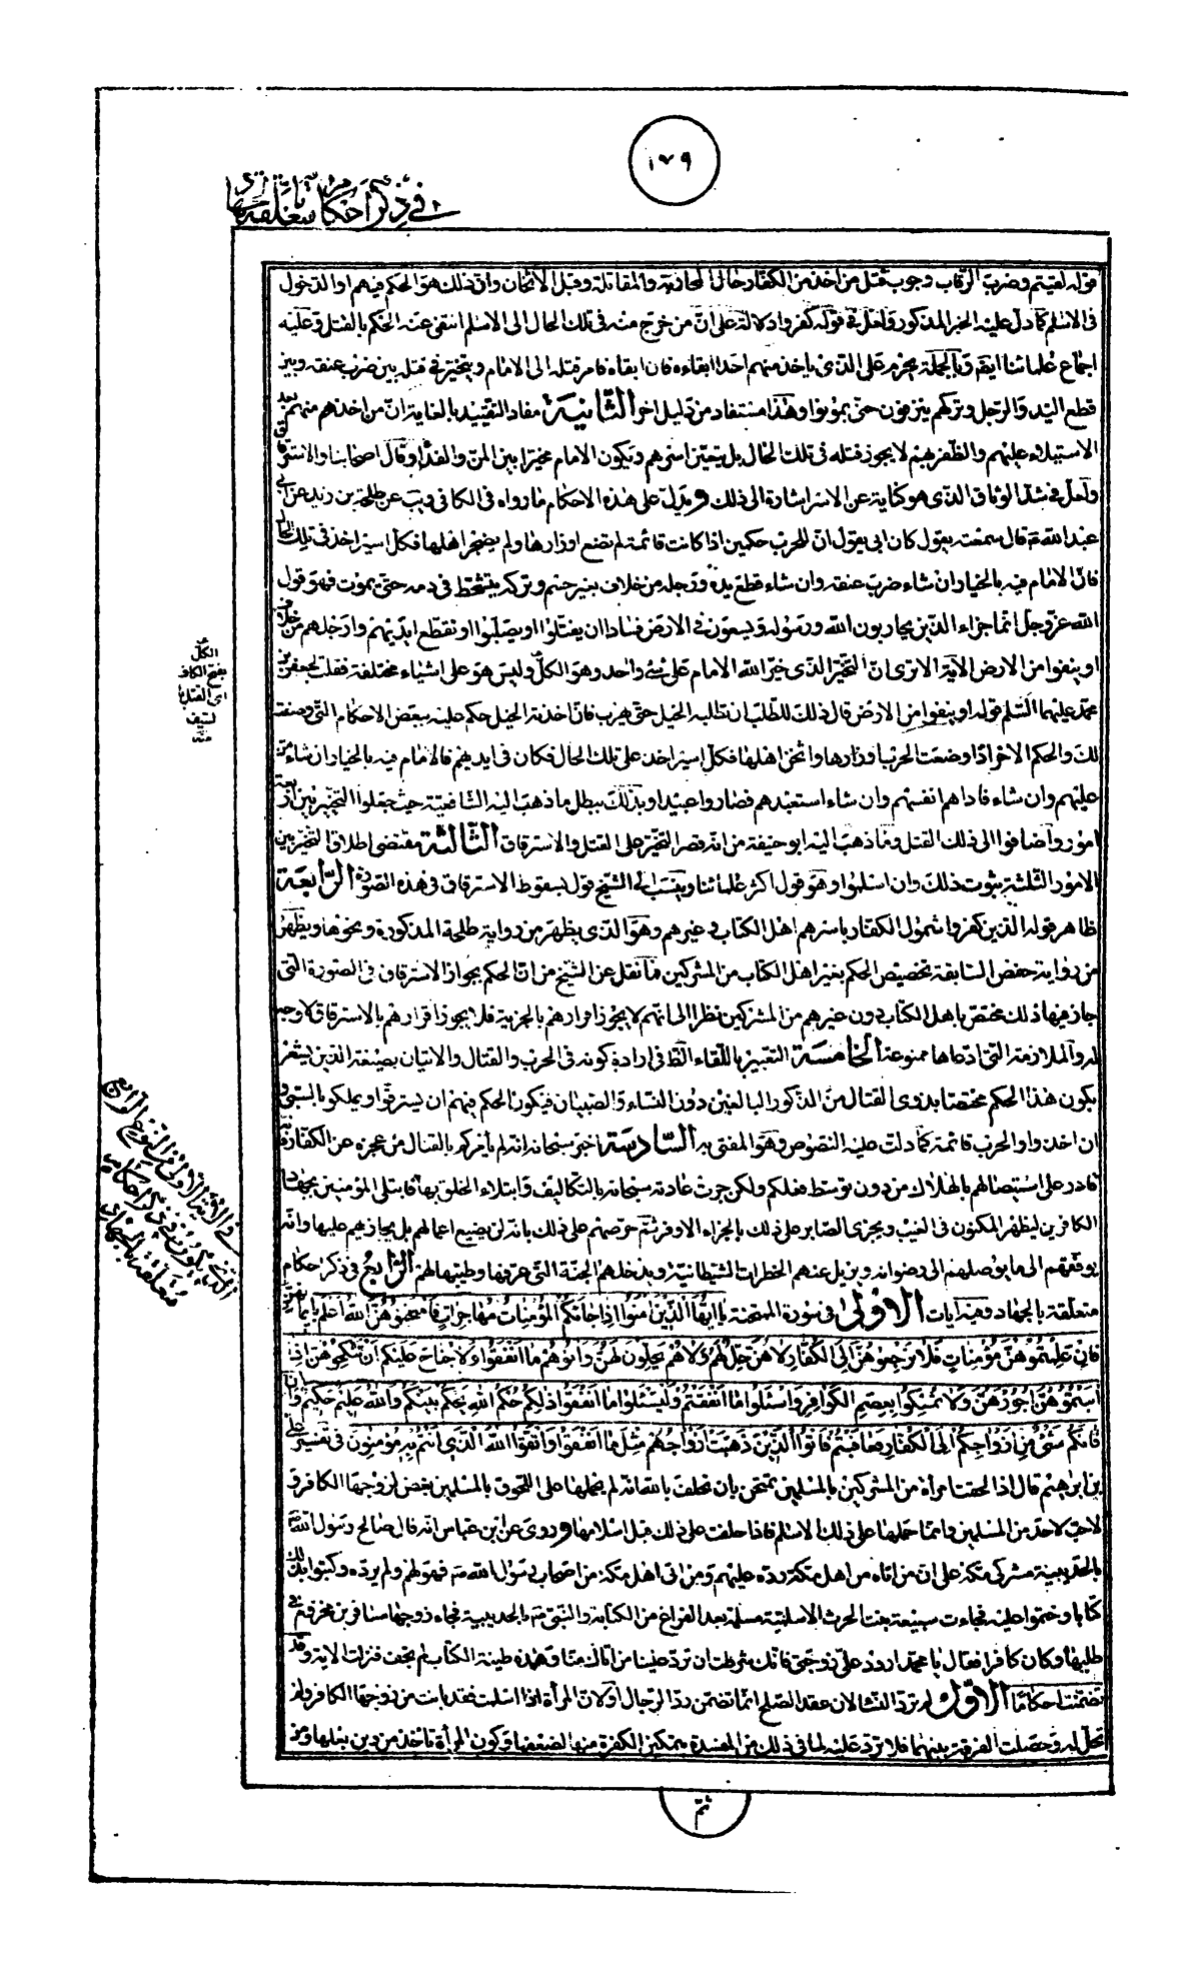 ١٧٩
في ذكر احكام متعلقة بالجهاد
قوله لقيتم وضرب الرقاب وجوب قتل من اخذ من الكفار حال المحاربة والمقاتلة وقبل الاثخان وان ذلك هو الحكم فيهم او الدخول
في الاسلام كما دل عليه الخبر المذكور ولعل في قوله كفروا دلالة على ان من خرج منه في تلك الحال الى الاسلام انتفى عنه الحكم بالقتل وعليه
اجماع علمائنا ايضا وبالجملة يحرم على الذى ياخذ منهم احدا ابقاءه فان ابقاه فامر قتله الى الامام ويتخير في قتله بين ضرب عنقه وبين
قطع اليد والرجل وتركهم ينزفون حتى يموتوا وهذا مستفاد من دليل اخر الثانية مفاد التقييد بالغاية ان من اخذ منهم بعد
الاستيلاء عليهم والظفر بهم لا يجوز قتله في تلك الحال بل يتعين اسرهم ويكون الامام مخيرا بين المن والفداء وقال اصحابنا والاسترقاق
ولعل في شد الوثاق الذى هو كناية عن الاسر اشارة الى ذلك ويدل على هذه الاحكام ما رواه في الكافي ويب عن طلحة بن زيد عن ابي
عبد الله ع قال سمعته يقول كان ابى يقول ان للحرب حكمين اذا كانت قائمة لم تضع اوزارها ولم يضجر اهلها فكل اسير اخذ في تلك الحال
فان الامام فيه بالخيار ان شاء ضرب عنقه وان شاء قطع يده ورجله من خلاف بغير حسم وتركه يتشحط في دمه حتى يموت فهو قول
الله عز وجل انما جزاء الذين يحاربون الله ورسوله ويسعون في الارض فسادا ان يقتلوا او يصلبوا او تقطع ايديهم وارجلهم من خلاف
او ينفوا من الارض الآية الا ترى ان التخير الذى خير الله الامام على شئ واحد وهو الكل وليس هو على اشياء مختلفة فقلت لجعفر بن
محمد عليهما السلام قوله او ينفوا من الارض قال ذلك للطلب ان تطلبه الخيل حتى يهرب فان اخذته الخيل حكم عليه ببعض الاحكام التى وصفت
لك والحكم الاخر اذا وضعت الحرب اوزارها واثخن اهلها فكل اسير اخذ على تلك الحال فكان في ايديهم فالامام فيه بالخيار ان شاء من
عليهم وان شاء فاداهم انفسهم وان شاء استعبدهم فصاروا عبيدا وبذلك يبطل ما ذهب اليه الشافعية حيث جعلوا التخيير بين اربعة
امور واضافوا الى ذلك القتل وما ذهب اليه ابو حنيفة من انه قصر التخير على القتل والاسترقاق الثالثة مقتضى اطلاق التخير بين
الامور الثلثة ثبوت ذلك وان اسلموا وهو قول اكثر علمائنا وينسب الى الشيخ قول بسقوط الاسترقاق في هذه الصورة الرابعة
ظاهر قوله الذين كفروا شمول الكفار باسرهم اهل الكتاب وغيرهم وهو الذى يظهر من رواية طلحة المذكورة ونحوها ويظهر
من رواية حفص السابقة تخصيص الحكم بغير اهل الكتاب من المشركين فما نقل عن الشيخ من ان الحكم بجواز الاسترقاق في الصورة التى
جاز فيها ذلك مختص باهل الكتاب دون غيرهم من المشركين نظرا الى انهم لا يجوز اقرارهم بالجزية فلا يجوز اقرارهم بالاسترقاق لا وجه
له والملازمة التى ادعاها ممنوعة الخامسة التعبير باللقاء الظ في ارادة كونه في الحرب والقتال والاتيان بصيغة الذين يشعر
بكون هذا الحكم مختصا بذوى القتال من الذكور البالغين دون النساء والصبيان فيكون الحكم فيهم ان يسترقوا ويملكوا بالسبي و
ان اخذوا والحرب قائمة كما دلت عليه النصوص وهو المفتى به السادسة اخبر سبحانه انه لم يأمركم بالقتال من عجزه عن الكفار فانه
قادر على استيصالهم بالهلاك من دون توسط فعلكم ولكن جرت عادته سبحانه بالتكاليف وابتلاء الخلق بها فابتلى المؤمنين بجهاد
الكافرين ليظهر المكنون في الغيب ويجزى الصابر على ذلك بالجزاء الاوفر ثم حرصهم على ذلك بانه لن يضيع اعمالهم بل يجازيهم عليها وانه
يوفقهم الى ما يوصلهم الى رضوانه ويزيل عنهم الخطرات الشيطانية ويدخلهم الجنة التى عرفها وطيبها لهم الرابع في ذكر احكام
متعلقة بالجهاد وفيه آيات الاولى في سورة الممتحنة يا ايها الذين امنوا اذا جاءكم المؤمنات مهاجرات فامتحنوهن الله اعلم بايمانهن
فان علمتموهن مؤمنات فلا ترجعوهن الى الكفار لا هن حل لهم ولا هم يحلون لهن واتوهم ما انفقوا ولا جناح عليكم ان تنكحوهن اذا
اتيتموهن اجورهن ولا تمسكوا بعصم الكوافر واسئلوا ما انفقتم وليسئلوا ما انفقوا ذلكم حكم الله يحكم بينكم والله عليم حكيم وان
فاتكم شئ من ازواجكم الى الكفار فعاقبتم فاتوا الذين ذهبت ازواجهم مثل ما انفقوا واتقوا الله الذى انتم به مؤمنون في تفسير على
بن ابرهيم قال اذا لحقت امرأة من المشركين بالمسلمين تمتحن بان تحلف بالله انه لم يحملها على اللحوق بالمسلمين بغض لزوجها الكافر و
لا حب لاحد من المسلمين وانما حملها على ذلك الاسلام فاذا حلفت على ذلك قبل اسلامها وروى عن ابن عباس انه قال صالح رسول الله ص
بالحديبية مشركى مكة على ان من اتاه من اهل مكة رده عليهم ومن اتى اهل مكة من اصحاب رسول الله ص فهو لهم ولم يرده وكتبوا بذلك
كتابا وختموا عليه فجاءت سبيعة بنت الحرث الاسلمية مسلمة بعد الفراغ من الكتابة والنبي ص بالحديبية فجاء زوجها مسافر من مخزوم في
طلبها وكان كافرا فقال يا محمد اردد على زوجتى فانك شرطت ان ترد علينا من اتاك منا وهذه طينة الكتاب لم تجف فنزلت الاية وقد
تضمنت احكاما الاول لم ترد النساء لان عقد الصلح انما تضمن رد الرجال او لان المرأة اذا اسلمت فقد بانت من زوجها الكافر ولم
تحل له وحصلت الفرقة بينهما فلا ترد عليه لما في ذلك من المفسدة بتمكين الكفرة منها لضعفها وكون المرأة تاخذ من دين بعلها ومن
ثم
الكل
بفتح الكاف
اى القتل
بالسيف
منه
في الآية الاولى من النوع الرابع
الذى يكون في ذكر احكام
متعلقة بالجهاد